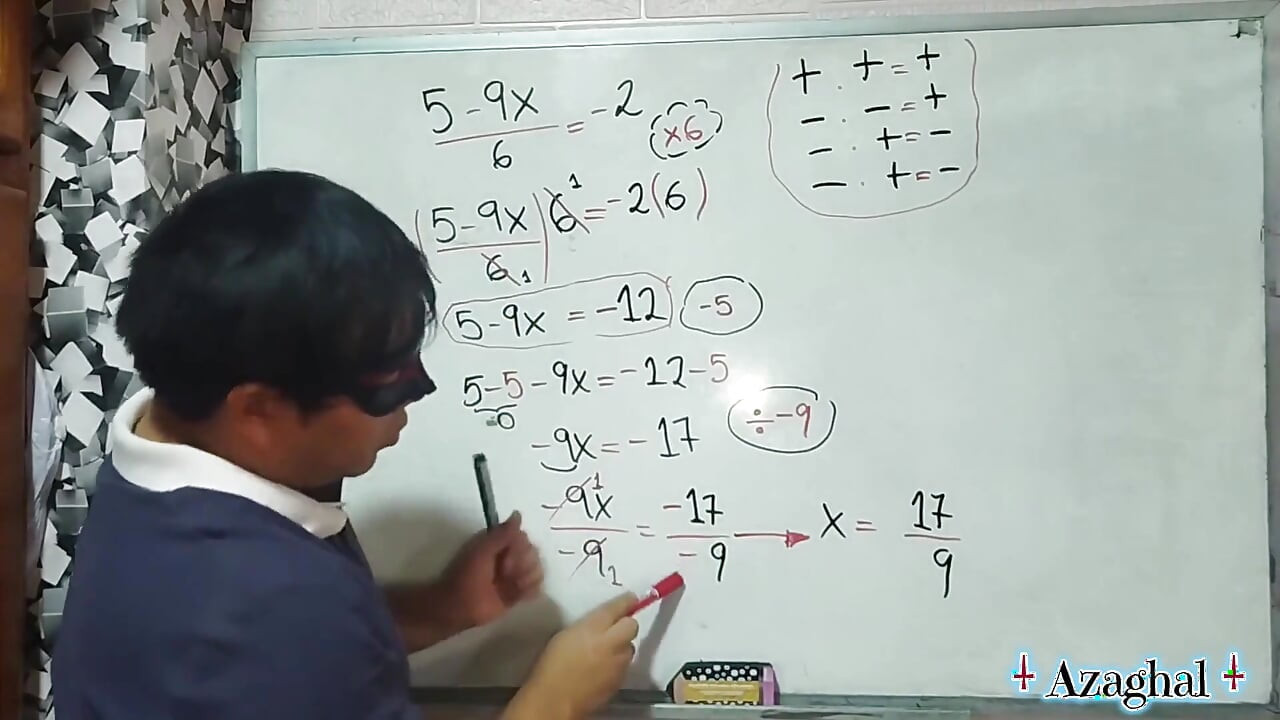 5-9x/6 = -2 (×6)
(5-9x/6 1)6 1 = -2(6)
5-9x = -12 (-5)
5-5-9x = -12-5
0
-9x = -17 (÷-9)
-9 1 x/-9 1 = -17/-9 → x = 17/9
+ . + = +
- . - = +
- . + = -
- . + = -
Azaghal